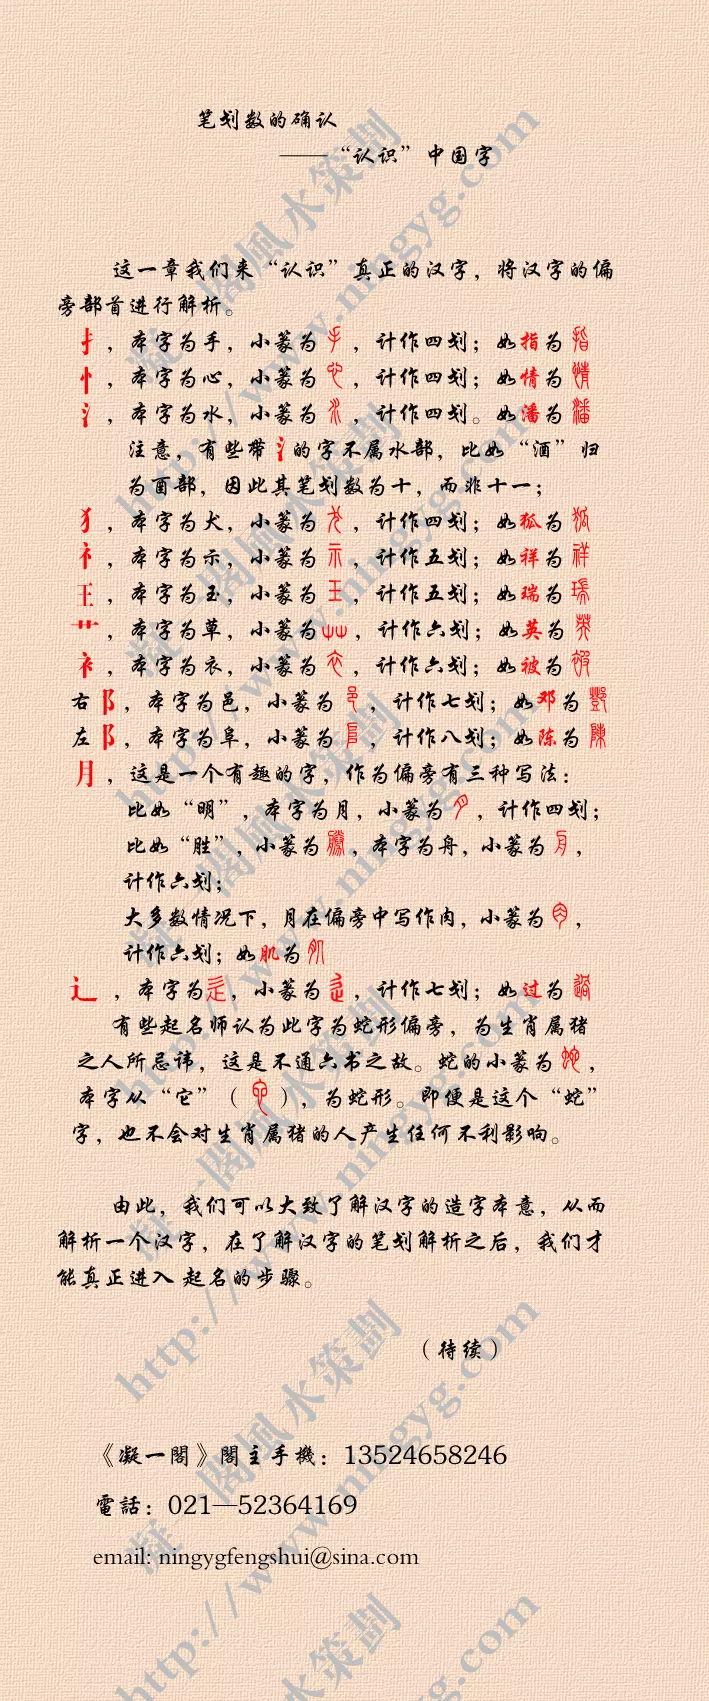 笔划数的确认
——“认识”中国字
这一章我们来“认识”真正的汉字，将汉字的偏
旁部首进行解析。
扌，本字为手，小篆为手，计作四划；如指为指
忄，本字为心，小篆为心，计作四划；如情为情
氵，本字为水，小篆为水，计作四划。如潘为潘
注意，有些带氵的字不属水部，比如“酒”归
为酉部，因此其笔划数为十，而非十一；
犭，本字为犬，小篆为犬，计作四划；如狐为狐
礻，本字为示，小篆为示，计作五划；如祥为祥
王，本字为玉，小篆为王，计作五划；如瑞为瑞
艹，本字为草，小篆为艸，计作六划；如英为英
衤，本字为衣，小篆为衣，计作六划；如被为被
右阝，本字为邑，小篆为邑，计作七划；如邓为鄧
左阝，本字为阜，小篆为𨸏，计作八划；如陈为陳
月，这是一个有趣的字，作为偏旁有三种写法：
比如“明”，本字为月，小篆为月，计作四划；
比如“胜”，小篆为勝，本字为舟，小篆为舟，
计作六划；
大多数情况下，月在偏旁中写作肉，小篆为肉，
计作六划；如肌为肌
辶，本字为辵，小篆为辵，计作七划；如过为過
有些起名师认为此字为蛇形偏旁，为生肖属猪
之人所忌讳，这是不通六书之故。蛇的小篆为蛇，
本字从“它”（它），为蛇形。即便是这个“蛇”
字，也不会对生肖属猪的人产生任何不利影响。
由此，我们可以大致了解汉字的造字本意，从而
解析一个汉字，在了解汉字的笔划解析之后，我们才
能真正进入 起名的步骤。
（待续）
《凝一閣》閣主手機：13524658246
電話：021—52364169
email: ningygfengshui@sina.com
凝一閣風水策劃
http://www.ningyg.com